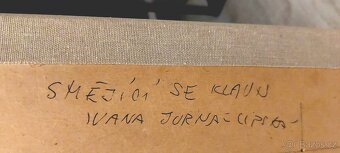 SMĚJÍCÍ SE KLAUN
IVANA JURNA-LIPSKÁ-